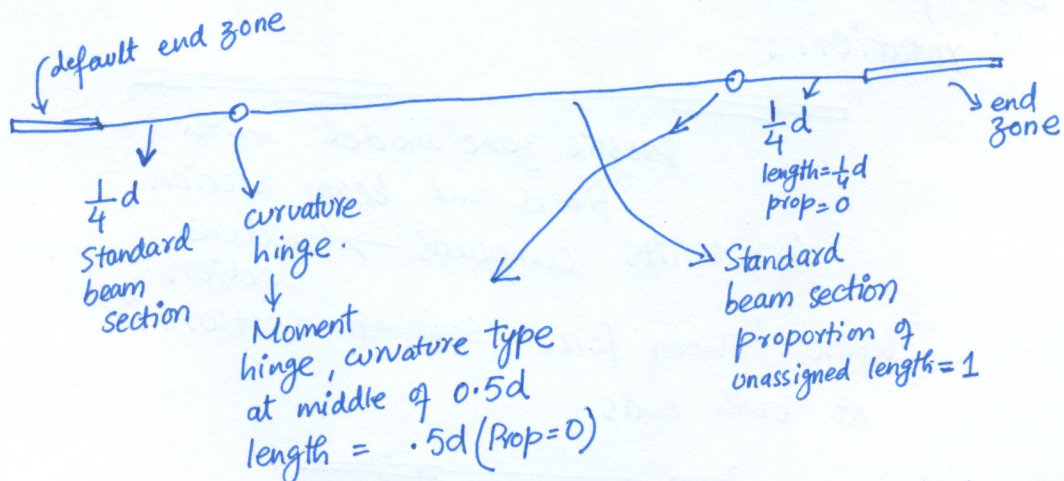 default end zone
end
zone
1/4 d
Standard
beam
section
curvature
hinge.
Moment
hinge, curvature type
at middle of 0.5d
length = .5d (Prop=0)
1/4 d
length = 1/4 d
prop = 0
Standard
beam section
proportion of
unassigned length = 1